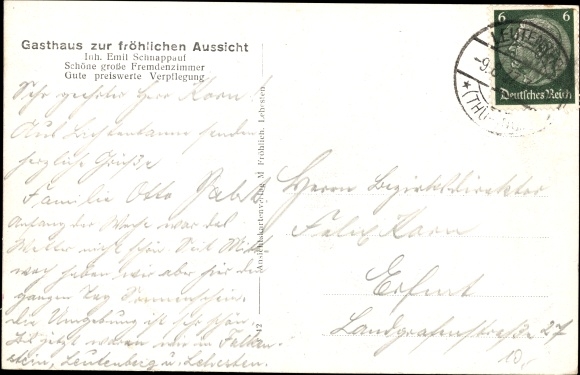 Gasthaus zur fröhlichen Aussicht
Inh. Emil Schnappauf
Schöne große Fremdenzimmer
Gute preiswerte Verpflegung
Sehr geehrter Herr Korn!
Aus Lichtentanne senden
herzliche Grüße
Familie Otto Pabst
Anfang der Woche war das
Wetter nicht schön. Seit Mitt-
woch haben wir aber hier den
ganzen Tag Sonnenschein.
Die Umgebung ist sehr schön.
Bis jetzt waren wir in Falken-
stein, Leutenberg u. Lehesten.
Ansichtskartenverlag M. Fröhlich, Lehesten
6 6
Deutsches Reich
LEUTENBERG
-9.8.
(THÜR
Herrn Bezirksdirektor
Felix Korn
Erfurt
Landgrafenstraße 27